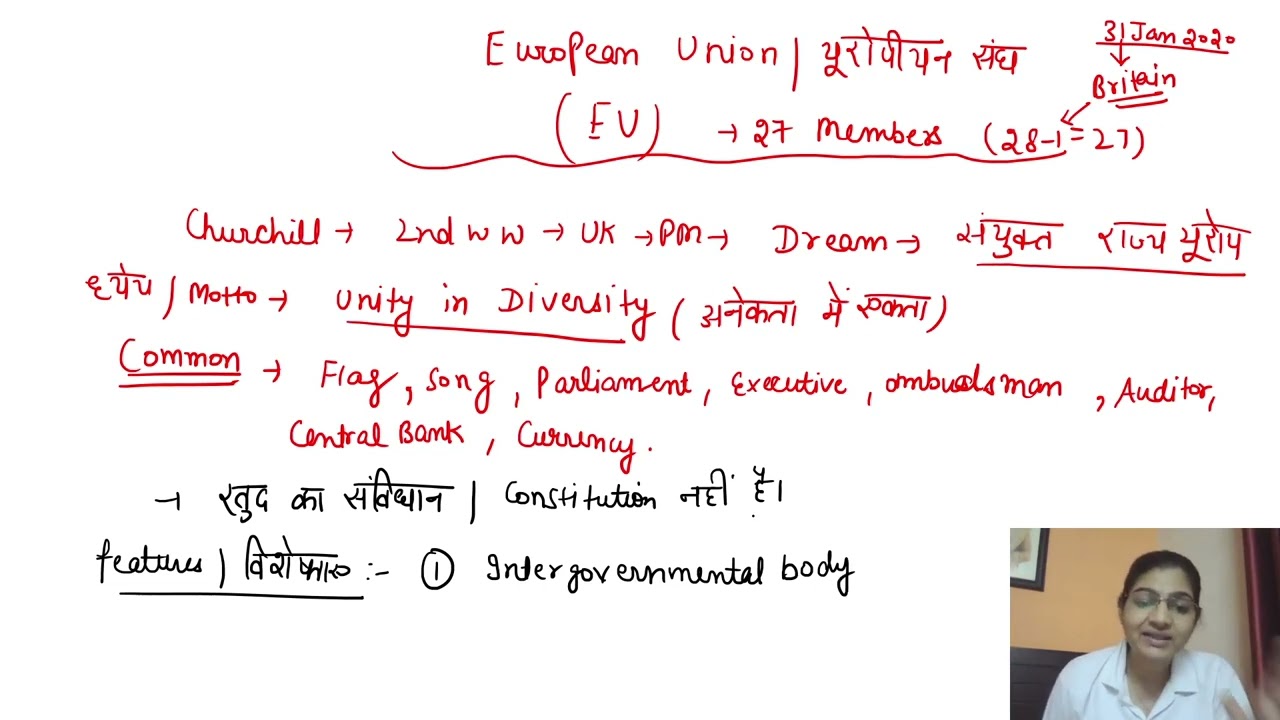 European Union | यूरोपीयन संघ
31 Jan 2020
Britain
(EU) → 27 Members (28-1=27)
Churchill → 2nd W W → UK → PM → Dream → संयुक्त राज्य यूरोप
ध्येय / Motto → Unity in Diversity (अनेकता में एकता)
Common → Flag, Song, Parliament, Executive, ombudsman, Auditor,
Central Bank, Currency.
→ खुद का संविधान | Constitution नहीं है।
features | :- ① Intergovernmental body